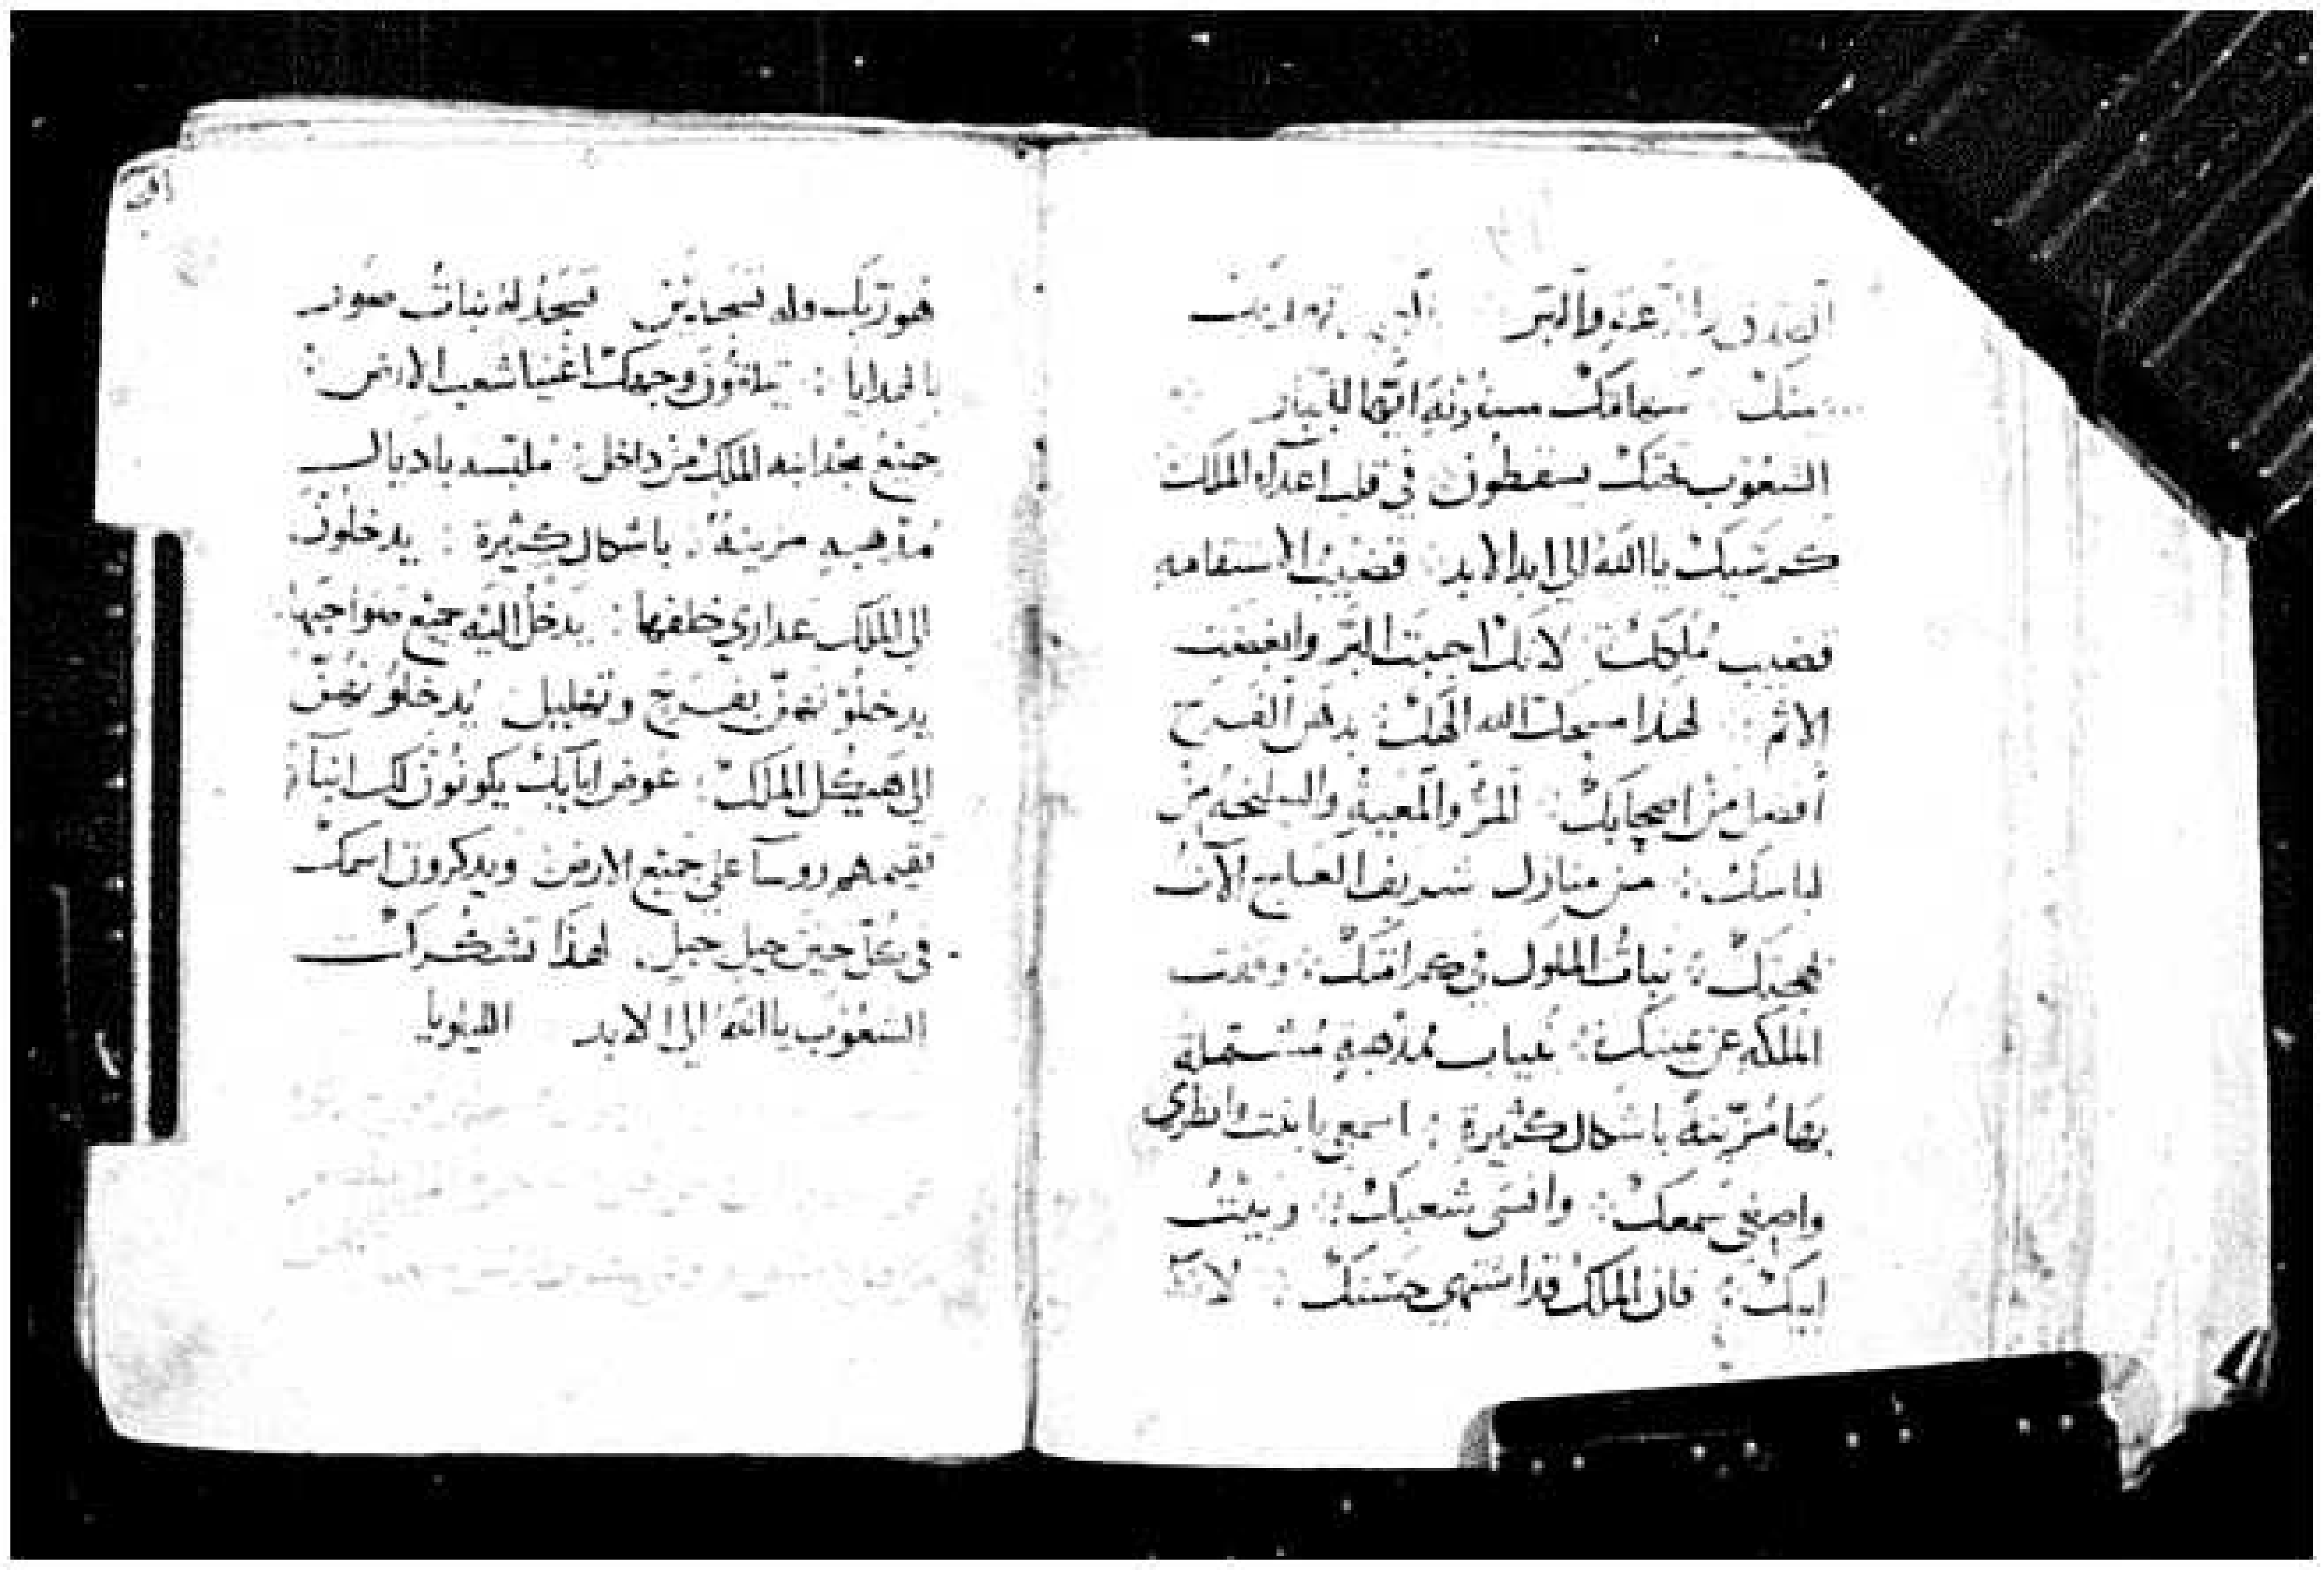 والبر
سهامك مسنونه ايها الجبار
الشعوب تحتك يسقطون في قلب اعداء الملك
كرسيك يا الله الي ابد الابد قضيب الاستقامه
قضيب ملكك لانك احببت البر وابغضت
الاثم لهذا مسحك الله الهك بدهن الفرح
افضل من اصحابك المر والمعية والسليخه من
لباسك من منازل شريف العاج
بنات الملوك في كرامتك
الملكه عن يمينك بثياب مذهبة مشتملة
بها مزينة باشكال كثيرة اسمعي يا بنت وانظري
واصغي سمعك وانسي شعبك وبيت
ابيك فان الملك قد اشتهي حسنك لانه
الي
هو ربك وله تسجدين تسجد له بنات صور
بالهدايا يلقون وجهك اغنيا شعب الارض
جميع مجد ابنه الملك من داخل ملتبسه باديال
مذهبه مزينة باشكال كثيرة يدخلون
الي الملك عداري خلفها يدخل اليه جميع صواحبها
يدخلونهن بفرح وتهليل يدخلونهن
الي هيكل الملك عوض ابايك يكونون لك ابناء
تقيمهم روسا علي جميع الارض ويدكرون اسمك
في كل حين جيل جيل لهذا تشكرك
الشعوب يا الله الي الابد الليلويا